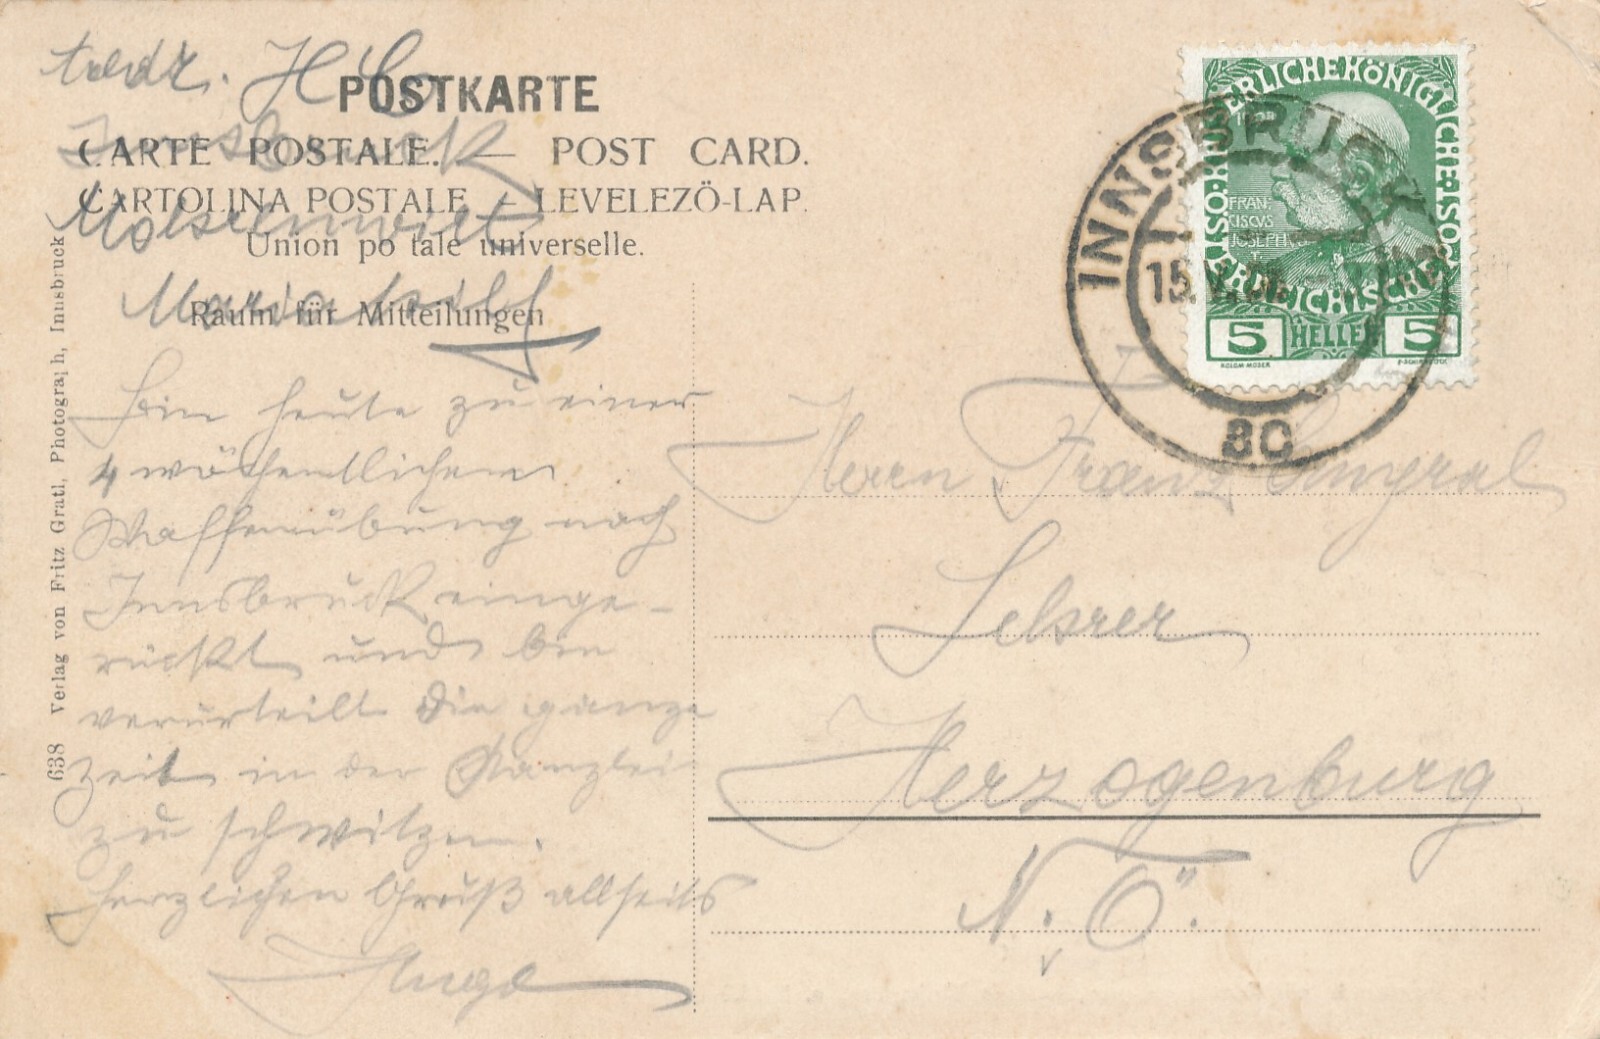 POSTKARTE
CARTE POSTALE. — POST CARD.
CARTOLINA POSTALE — LEVELEZÖ-LAP.
Union po tale universelle.
Raum für Mitteilungen
Innsbruck
Mariahilf
Bin heute zu einer
4 wöchentlichen
Waffenübung nach
Innsbruck einge-
rückt und bin
verurteilt die ganze
Zeit in der Kanzlei
zu schwitzen.
Herzlichen Gruß allseits
Hugo
638 Verlag von Fritz Gratl, Photograph, Innsbruck
KAISERLICHE KÖNIGLICHE
ÖSTERREICHISCHE POST
FRAN-
CISCVS
JOSEPH
5 HELLER 5
KOLOM MOSER
INNSBRUCK
15.V
Herrn Franz
Lehrer
Herzogenburg
N. Ö.